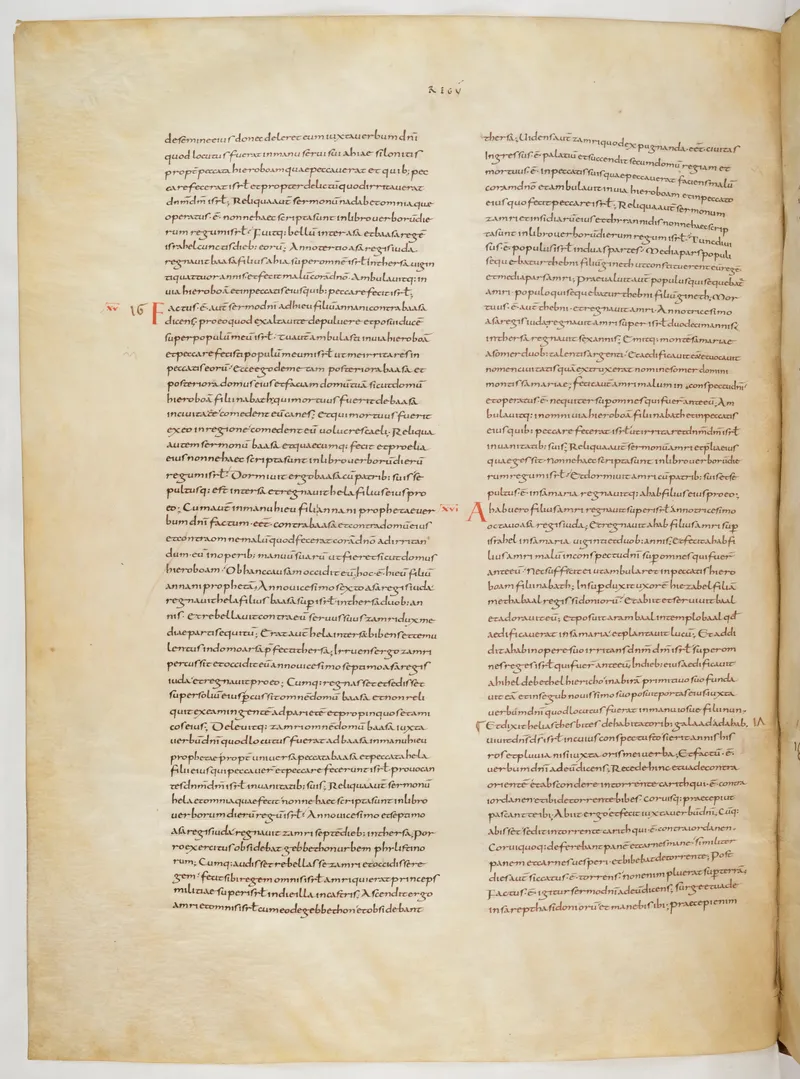 REGV̄
de semine eius donec deleret eum iuxta uerbum dn̄i
quod locutus fuerat in manu serui sui ahiae silonitis
propt̄ peccata hieroboam quae peccauerat et quib; pec
care fecerat isrƚ et propter delictū quo dirritauerat
dn̄m dm̄ isrƚ; Reliqua aut̄ sermonū nadab et omnia que
operatus ē nonne haec scripta sunt in libro uerborū die
rum regum isrƚ; Fuitq; bellū inter asa et baasa regē
israhel cunctis dieb; eorū; Anno tertio asa regis iuda
regnauit baasa filius ahia super omnē isrƚ in thersa uigin
ti quattuor annis et fecit malū corā dn̄o. Ambulauitq; in
uia hieroboā et in peccatis eius quib; peccare fecit isrƚ;
XV 16 Factus ē aut̄ sermo dn̄i ad hieu filiū annani contra baasa
dicens; pro eo quod exaltaui te de puluere et posui ducē
super populū meū isrƚ; tu aut̄ ambulasti in uia hieroboā
et peccare fecisti populū meum isrƚ ut me irritares in
peccatis eorū; Ecce ego demetam posteriora baasa et
posteriora domus eius et faciam domū tuā sicut domū
hieroboā filii nabath qui mortuus fuerit de baasa
in ciuitate comedent eū canes; et qui mortuus fuerit
ex eo in regione comedent eū uolucres caeli; Reliqua
autem sermonū baasa et quaecumq; fecit et proelia
eius nonne haec scripta sunt in libro uerborū dierū
regum isrƚ; Dormiuit ergo baasa cū patrib; suis se
pultusq; est in thersa et regnauit hela filius eius pro
eo; Cum aut̄ in manu hieu filii annani prophetae uer
bum dn̄i factum eēt contra baasa et contra domū eius
et contra omne malū quod fecerat corā dn̄o ad irritan
dum eū in operib; manuū suarū ut fieret sicut domus
hieroboam; Ob hanc causam occidit eū; hoc ē hieu filiū
annani prophetā; Anno uicesimo sexto asa regis iuda
regnauit hela filius baasa sup isrƚ in thersa duob; an
nis; et rebellauit contra eū seruus suus zamri dux me
diae partis equitū; Erat aut̄ hela in thersa bibens et temu
lentus in domo arsa p̄fecti thersa; Irruens ergo zamri
percussit et occidit eū anno uicesimo septimo asa regis
iuda et regnauit pro eo; Cumq; regnasset et sedisset
super soliū eius p̄cussit omnē domū baasa et non reli
quit ex ea mingentē ad parietē et propinquos et ami
cos eius; Deleuitq; zamri omnē domū baasa iuxta
uerbū dn̄i quod locutus fuerat ad baasa in manu hieu
prophetae propt̄ uniuersa peccata baasa et peccata hela
filii eius qui peccauer̄ et peccare fecerunt isrƚ prouocan
tes dn̄m dm̄ isrƚ in uanitatib; suis; Reliqua aut̄ sermonū
hela et omnia quae fecit nonne haec scripta sunt in libro
uerborum dierū regū isrƚ; Anno uicesimo et septimo
asa regis iuda regnauit zamri septē dieb; in thersa; por
ro exercitus obsidebat gebbethon urbem philistino
rum; Cumq; audisset rebellasse zamri et occidisse re
gem; fecit sibi regem omnis isrƚ amri qui erat princeps
militiae super isrƚ in die illa in castris; Ascendit ergo
amri et omnis isrƚ cum eo de gebbethon et obsidebant
thersa; Uidens aut̄ zamri quod expugnanda eēt ciuitas
Ingressus ē palatiū et succendit se cum domu regia et
mortuus ē in peccatis suis quae peccauerat faciens malū
coram dn̄o et ambulans in uia hieroboam et in peccato
eius quo fecit peccare isrƚ; Reliqua aut̄ sermonum
zamri et insidiarū eius et thirannidis nonne haec scrip
ta sunt in libro uerborum dierum regum isrƚ; Tunc diui
sus ē populus isrƚ in duas partes; Media pars populi
sequebatur thebni filiū gineth ut constitueret eū regē
et media pars amri; praeualuit aut̄ populus qui sequebat̄
amri populo qui sequebatur thebni filiū gineth; Mor
tuus ē aut̄ thebni et regnauit amri. Anno tricesimo
asa regis iuda regnauit amri super isrƚ duodecim annis
in thersa regnauit sex annis; Emitq; montē samariae
a somer duob; talentis argenti; Et aedificauit eā et uocauit
nomen ciuitatis quā extruxerat nomine somer domini
montis samariae; fecit aut̄ amri malum in conspectu dn̄i
et operatus ē nequiter sup omnes qui fuer̄ ante eū; Am
bulauitq; in omni uia hieroboā filii nabath et in peccatis
eius quib; peccare fecerat isrƚ ut irritaret dn̄m dm̄ isrƚ
in uanitatib; suis; Reliqua aut̄ sermonū amri et p̄lia eius
quae gessit nonne haec scripta sunt in libro uerborū die
rum regum isrƚ; Et dormiuit amri cū patrib; suis et se
pultus ē in samaria regnauitq; ahab filius eius pro eo;
XVI Ahab uero filius amri regnauit super isrƚ anno tricesimo
octauo asa regis iuda; Et regnauit ahab filius amri sup̄
israhel in samaria uiginti et duob; annis; Et fecit ahab fi
lius amri malū in conspectu dn̄i sup̄ omnes qui fuer̄
ante eū; Nec suffecit ei ut ambularet in peccatis hiero
boam filii nabath; Insup̄ duxit uxorē hiezabel filiā
methabaal regis sidoniorū; Et abiit et seruiuit baal
et adorauit eū; Et posuit aram baal in templo baal qd̄
aedificauerat in samaria et plantauit lucū; Et addi
dit ahab in opere suo irritans dn̄m dm̄ isrƚ super om
nes reges isrƚ qui fuer̄ ante eū; In dieb; eius aedificauit
ahihel de bethel hiericho in abirā primitiuo suo funda
uit eā et in segub nouissimo suo posuit portas eius iuxta
uerbū dn̄i quod locutus fuerat in manu iosue filii nun;
Et dixit helias thesbites de habitatorib; galaad ad ahab. 17
uiuit dn̄s ds̄ isrƚ in cuius conspectu sto si erit annis his
ros et pluuia nisi iuxta oris mei uerba; Et factū ē
uerbum dn̄i ad eū dicens; Recede hinc et uade contra
orientē et abscondere in torrente carith qui ē contra
iordanen et ibi de torrente bibes. Coruisq; praecepi ut
pascant te ibi; Abiit ergo et fecit iuxta uerbū dn̄i; Cūq;
abisset sedit in torrente carith qui ē contra iordanen.
Corui quoq; deferebant panē et carnes mane. similiter
panem et carnes uesperi et bibebat de torrente; Post
dies aut̄ siccatus ē torrens; non enim pluerat sup̄ terrā;
Factus ē igitur sermo dn̄i ad eū dicens; surge et uade
in sareptha sidoniorū et manebis ibi; praecepi enim